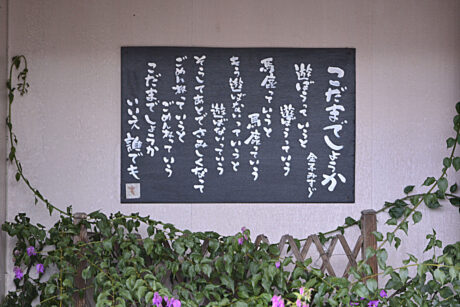 こだまでしょうか
金子みすゞ
遊ぼうっていうと
遊ぼうっていう
馬鹿っていうと
馬鹿っていう
もう遊ばないっていうと
遊ばないっていう
そうしてあとでさみしくなって
ごめんねっていうと
ごめんねっていう
こだまでしょうか
いいえ 誰でも